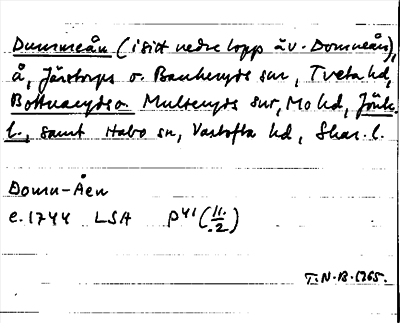 Dummeån (i sitt nedre lopp äv. Domneån),
å, Järstorps o. Bankeryds snr, Tveta hd,
Bottnaryds o. Mulseryds snr, Mo hd, Jönk.
l., samt Habo sn, Vartofta hd, Skar. l.
Domn-Åen
e. 1744 LSA P41 (11:2)
T.N.B. 1965.